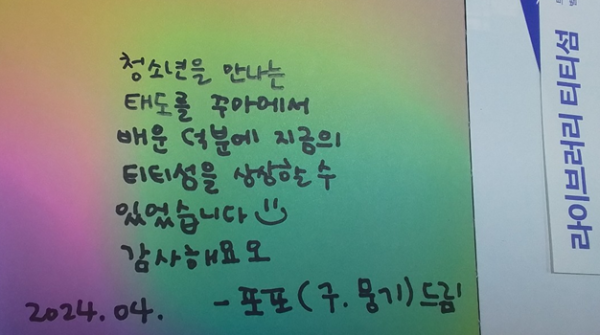 청소년을 만나는
태도를 꾸마에서
배운 덕분에 지금의
티티섬을 상상할 수
있었습니다
감사해요
2024. 04. - 포포(구. 뭉기)드림!
라이브러리 티티섬